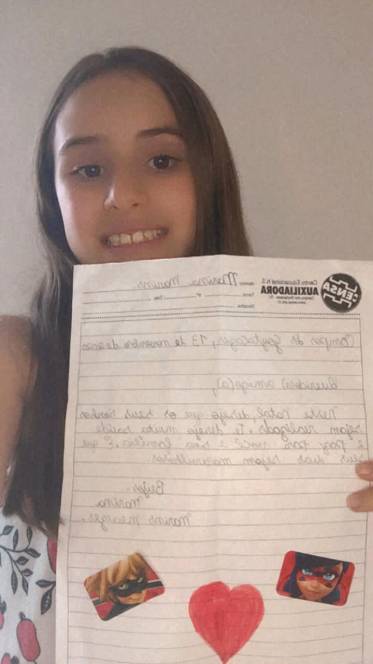 CENSA
Centro Educacional N.S.
AUXILIADORA
Marina Marins
Campos dos Goytacazes, 13, de novembro de 2020
Querido(a) amigo(a),
Neste Natal desejo que os seus sonhos
sejam realizados. Te desejo muita saúde
e paz para você e sua família. E que
seus dias sejam maravilhosos
Beijos.
marina
Marins menezes.